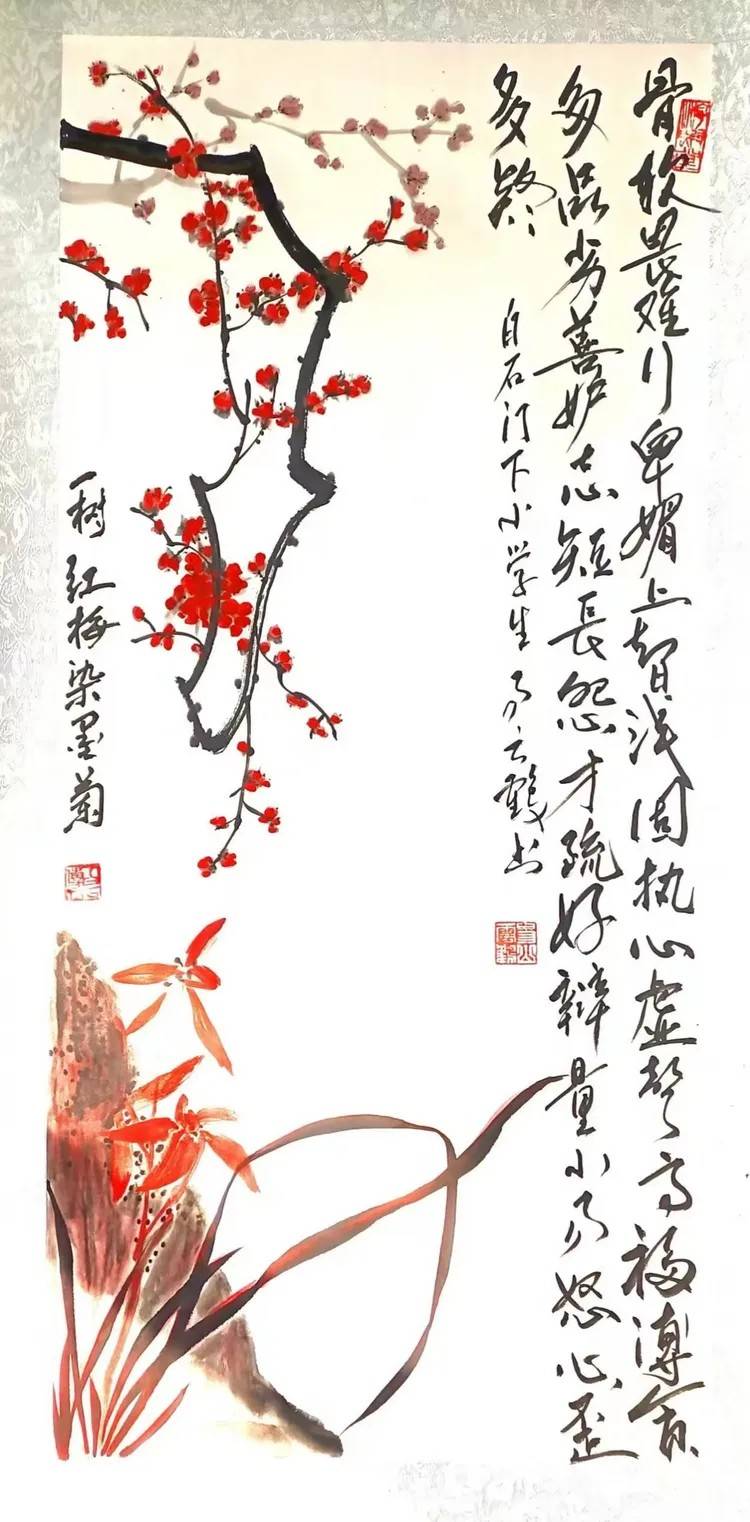 骨软畏难行卑媚上智浅固执心虚声高福薄贪
多品劣善妒志短長怨才疏好辩量小易怒心歪
多疑
白石门下小学生云鹤书
一树红梅染墨菊